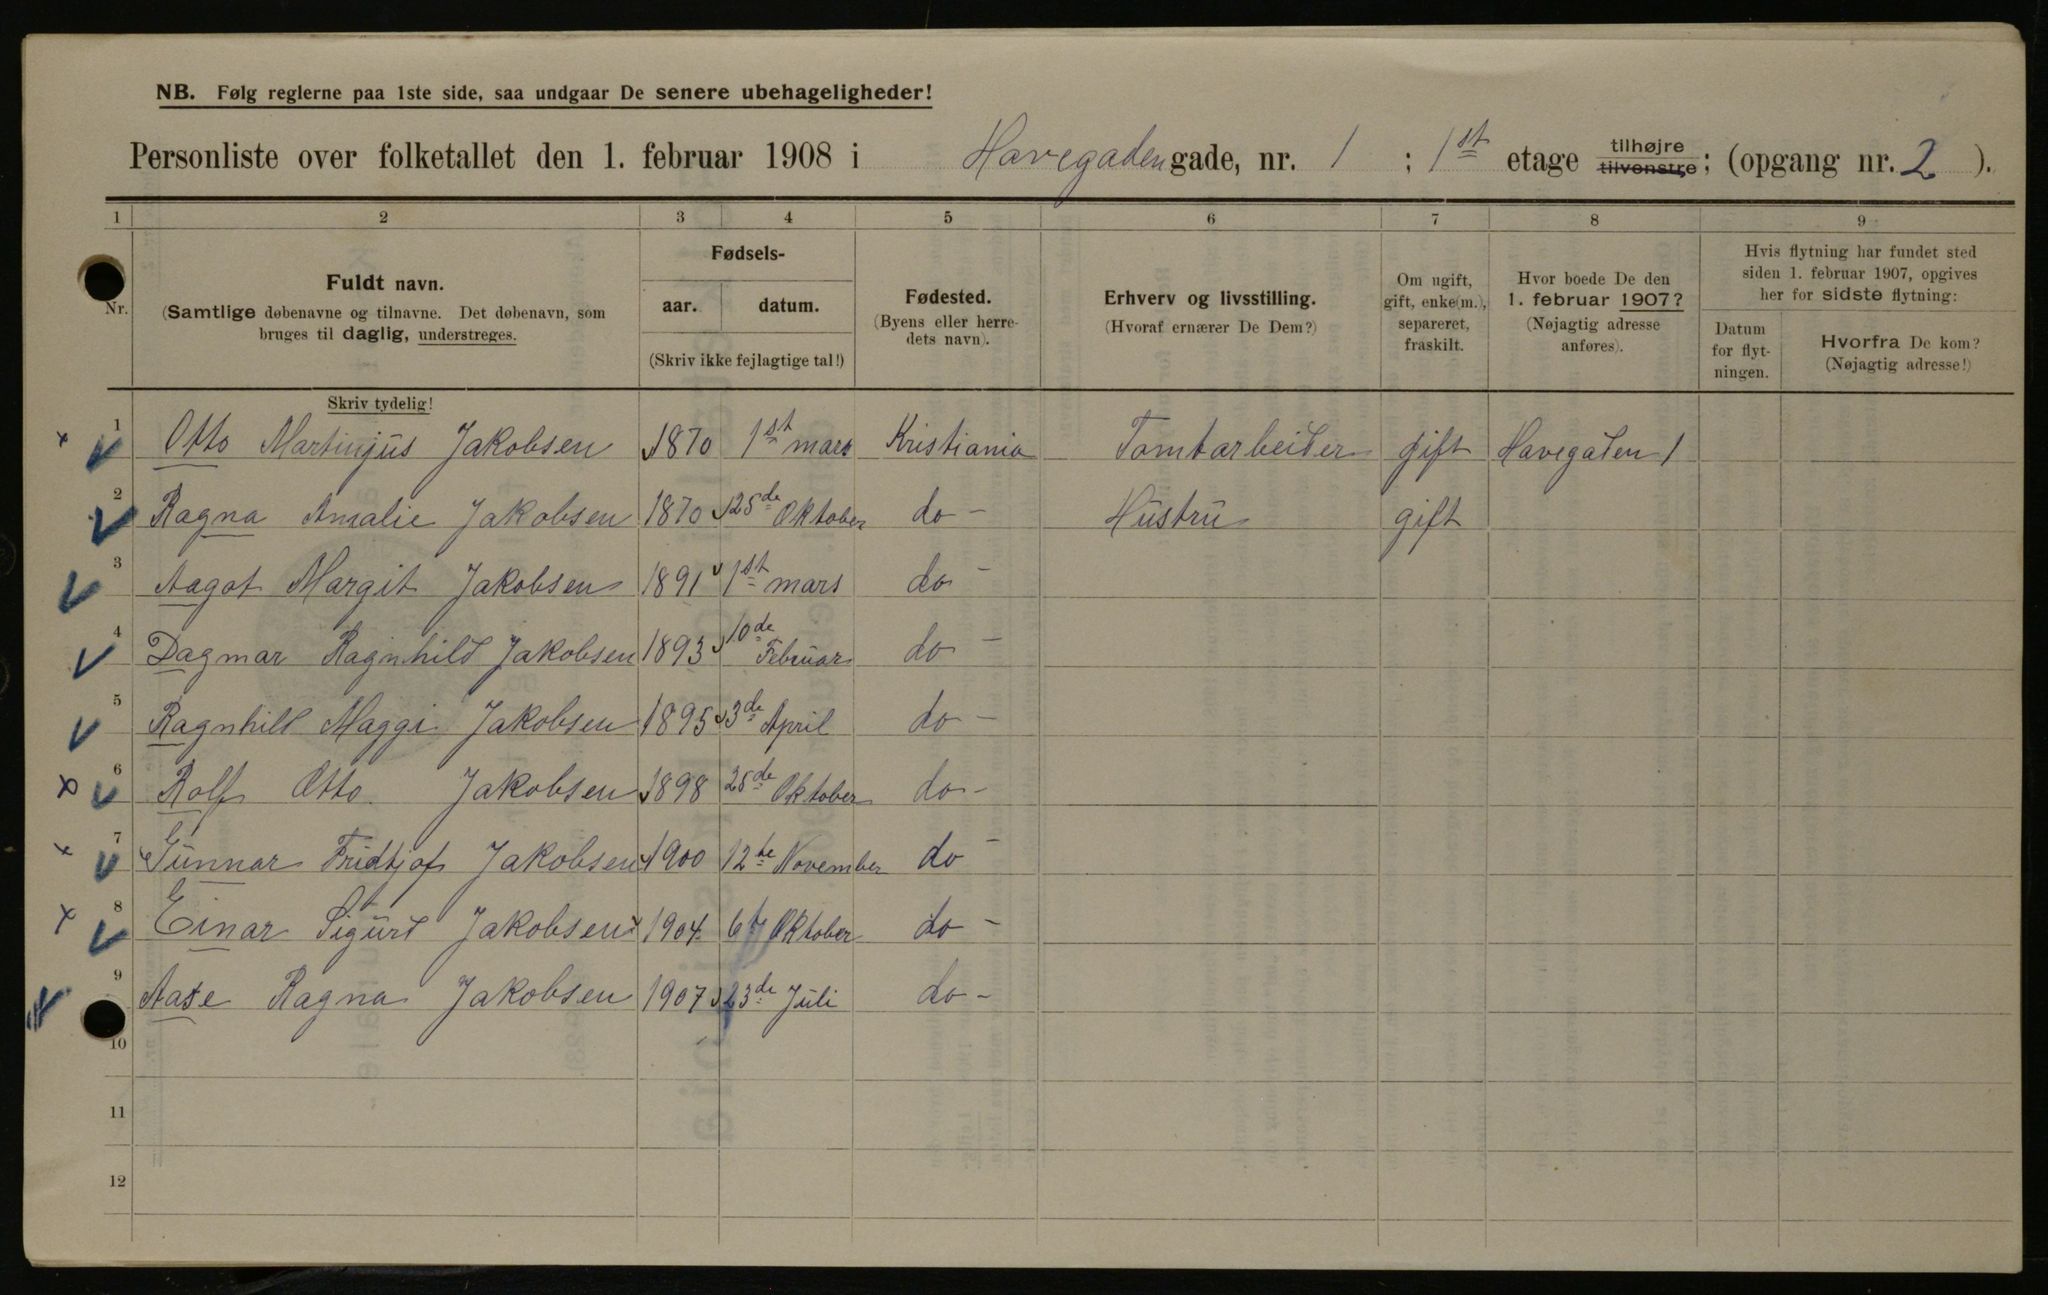 NB. Følg reglerne paa 1ste side, saa undgaar De senere ubehageligheder!
Personliste over folketallet den 1. februar 1908 i Havegaden gade, nr. 1 ; 1st etage tilhøjre tilvenstre; (opgang nr. 2 ).
1 2 3 4 5 6 7 8 9
Nr.
Fuldt navn.
(Samtlige døbenavne og tilnavne. Det døbenavn, som
bruges til daglig, understreges.
Fødsels-
aar. datum.
(Skriv ikke fejlagtige tal!)
Fødested.
(Byens eller herre-
dets navn).
Erhverv og livsstilling.
(Hvoraf ernærer De Dem?)
Om ugift,
gift, enke(m.),
separeret,
fraskilt.
Hvor boede De den
1. februar 1907?
(Nøjagtig adresse
anføres).
Hvis flytning har fundet sted
siden 1. februar 1907, opgives
her for sidste flytning:
Datum
for flyt-
ningen.
Hvorfra De kom?
(Nøjagtig adresse!)
Skriv tydelig!
1 Otto Martinjus Jakobsen 1870 1st mars Kristiania Tomtarbeider gift Havegaden 1
2 Ragna Amalie Jakobsen 1870 25de Oktober do - Hustru gift
3 Aagot Margit Jakobsen 1891 1st mars do -
4 Dagmar Ragnhild Jakobsen 1893 10de Februar do -
5 Ragnhild Maggi Jakobsen 1895 3de April do -
6 Rolf Otto Jakobsen 1898 25de Oktober do -
7 Gunnar Fridtjof Jakobsen 1900 12te November do -
8 Einar Sigurd Jakobsen 1904 6 Oktober do -
9 Aase Ragna Jakobsen 1907 23de Juli do -
10
11
12